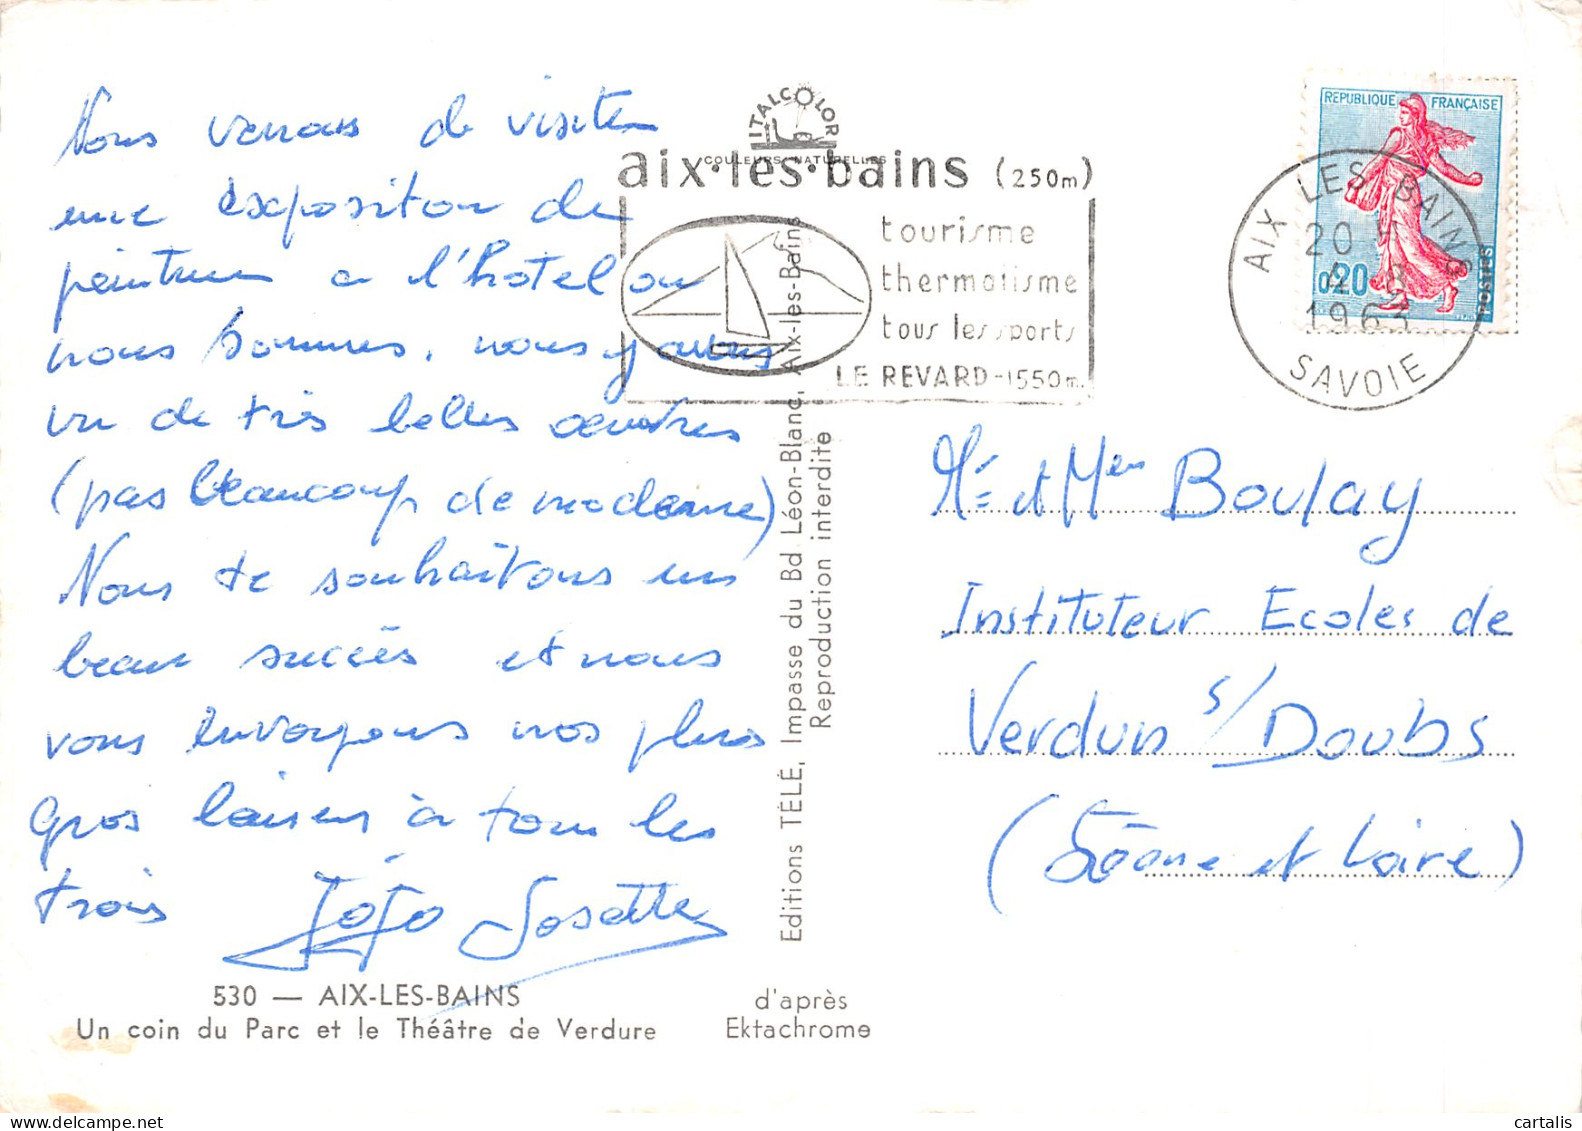 Nous venons de visiter
une exposition de
peinture a l'hotel ou
nous sommes. nous y avons
vu de très belles oeuvres
(pas beaucoup de moderne)
Nous te souhaitons un
beau succès et nous
vous envoyons nos plus
gros baisers à tous les
trois JoJo Josette
530 — AIX-LES-BAINS
Un coin du Parc et le Théâtre de Verdure
d'après
Ektachrome
Editions TÉLÉ, Impasse du Bd Léon-Blanc, Aix-les-Bains
Reproduction interdite
ITALCOLOR
COULEURS NATURELLES
aix·les·bains (250m)
tourisme
thermalisme
tous les sports
LE REVARD-1550m.
REPUBLIQUE FRANÇAISE
0,20
POSTES
AIX LES BAINS
20 H
1963
SAVOIE
Mr et Mme Boulay
Instituteur Ecoles de
Verdun s/Doubs
(Saône et Loire)
cartalis